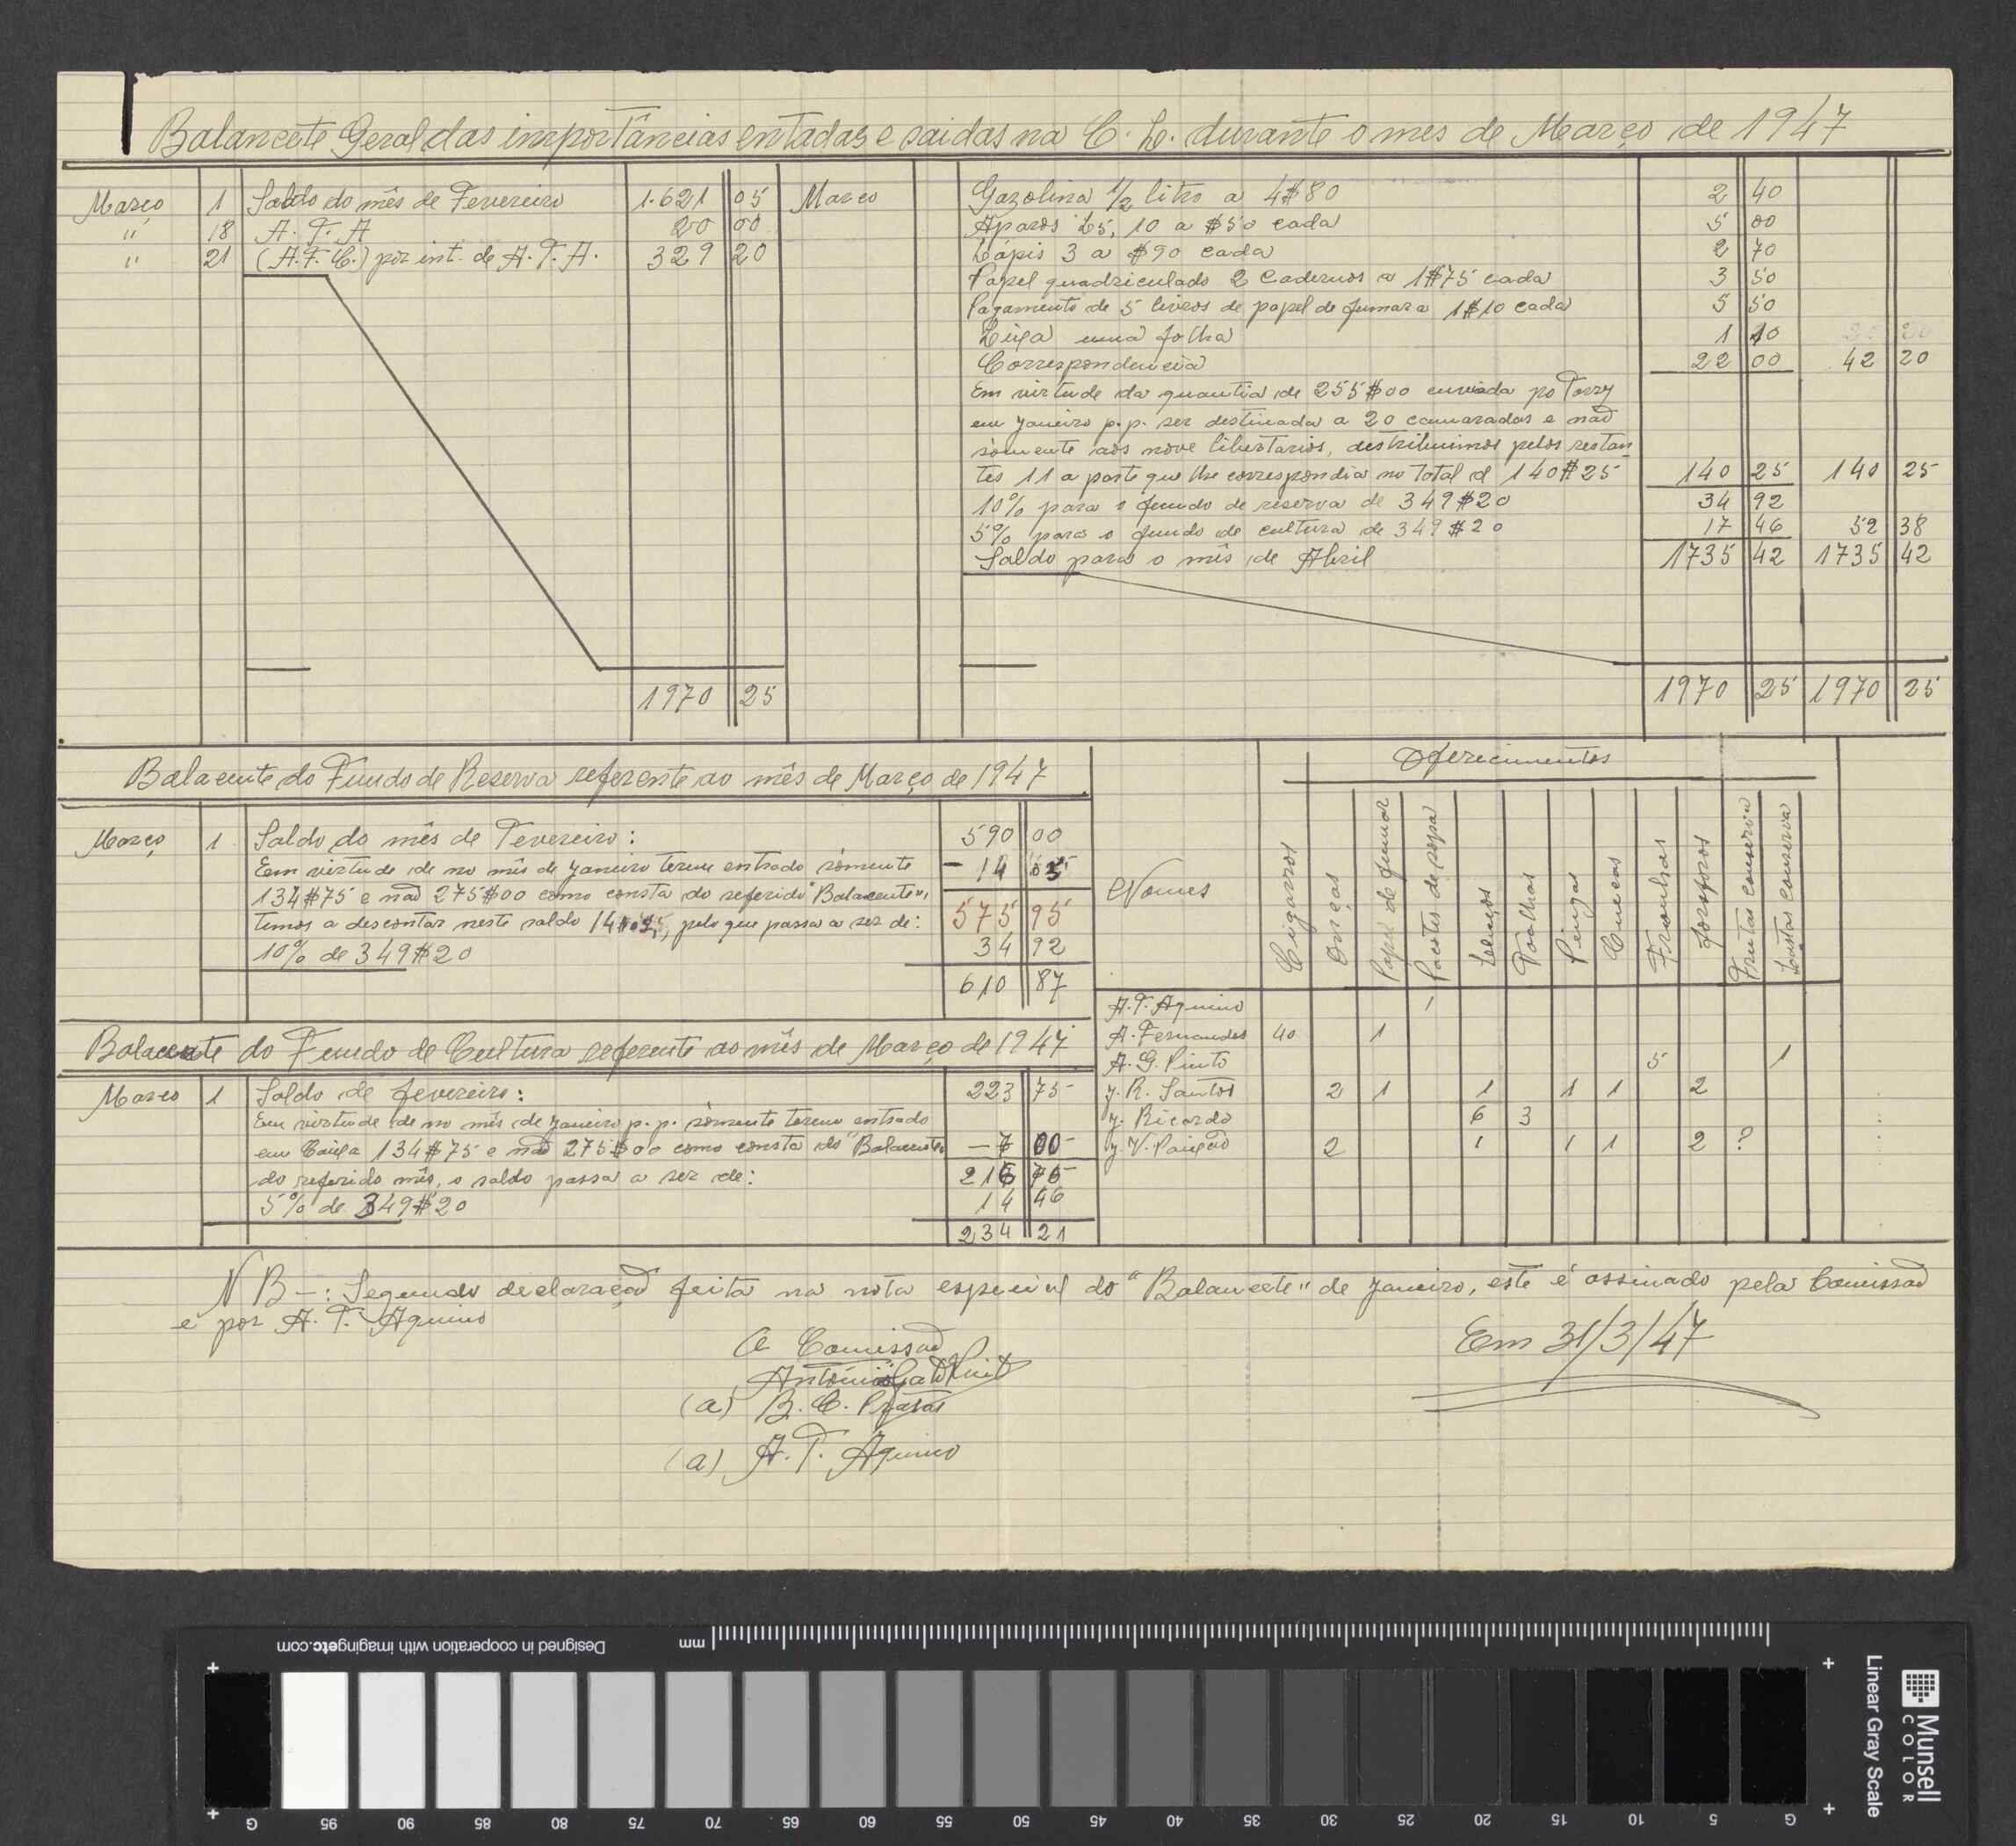 Balancete Geral das importâncias entadas e saidas na C. L. durante o mes de Março de 1947
Março 1 Saldo do mês de Fevereiro 1.621 05
" 18 A. T. A 20 00
" 21 (A. F. C.) por int. de A. T. A. 329 20
1970 25
Março Gazolina 1/2 litro a 4$80 2 40
Aparos 25, 10 a $50 cada 5 00
Lápis 3 a $90 cada 2 70
Papel quadriculado 2 Cadernos a 1$75 cada 3 50
Pagamento de 5 livros de papel de fumar a 1$10 cada 5 50
Lixa uma folha 1 10
Correspondencia 22 00 42 20
Em virtude da quantia de 255$00 enviada po Torry
em Janeiro p.p. ser destinada a 20 camaradas e não
sòmente aos nove libertarios, destribuimos pelos restan-
tes 11 a parte que lhe correspondia no Total d 140$25 140 25 140 25
10% para o fundo de reserva de 349$20 34 92
5% para o fundo de cultura de 349$20 17 46 52 38
Saldo para o mês de Abril 1735 42 1735 42
1970 25 1970 25
Balacente do Fundo de Reserva referente ao mês de Março de 1947
Março 1 Saldo do mês de Fevereiro: 590 00
Em virtude de no mês de Janeiro terem entrado sòmente - 14 05
134$75 e não 275$00 como consta do referido "Balacente",
temos a descontar neste saldo 14$05, pelo que passa a ser de: 575 95
10% de 349$20 34 92
610 87
Balacente do Fundo de Cultura referente ao mês de Março de 1947
Março 1 Saldo de fevereiro: 223 75
Em virtude de no mês de Janeiro p.p. sòmente terem entrado
em Caixa 134$75 e não 275$00 como consta do "Balacente" - 7 00
do referido mês, o saldo passa a ser de: 216 75
5% de 349$20 14 46
234 21
Oferecimentos
Nomes Cigarros Onças Papel de fumar Pacotes de sopa Lenços Toalhas Piugas Cuecas Fronhas Fosforos Frutas conserva Latas conserva
A. T. Aquino 1
A. Fernandes 40 1
A. G. Pinto 5 1
J. R. Santos 2 1 1 1 1 2
J. Ricardo 6 3
J. V. Paixão 2 1 1 1 2 ?
N B -: Segundo declaração feita na nota especial do "Balancete" de Janeiro, este é assinado pela Comissão
e por A. T. Aquino
Em 31/3/47
A Comissão
António Gato Pinto
(a) B. C.
(a) A. T. Aquino
Designed in cooperation with imagingetc.com
mm
G 95 90 85 80 75 70 65 60 55 50 45 40 35 30 25 20 15 10 5 G
Linear Gray Scale
Munsell
COLOR